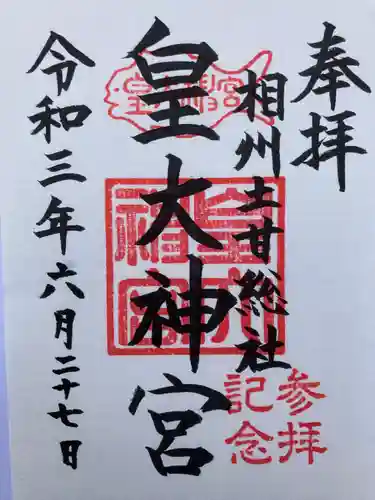 奉拝
相州土甘総社
皇大神宮
令和三年六月二十七日
皇大神宮
参拝
記念